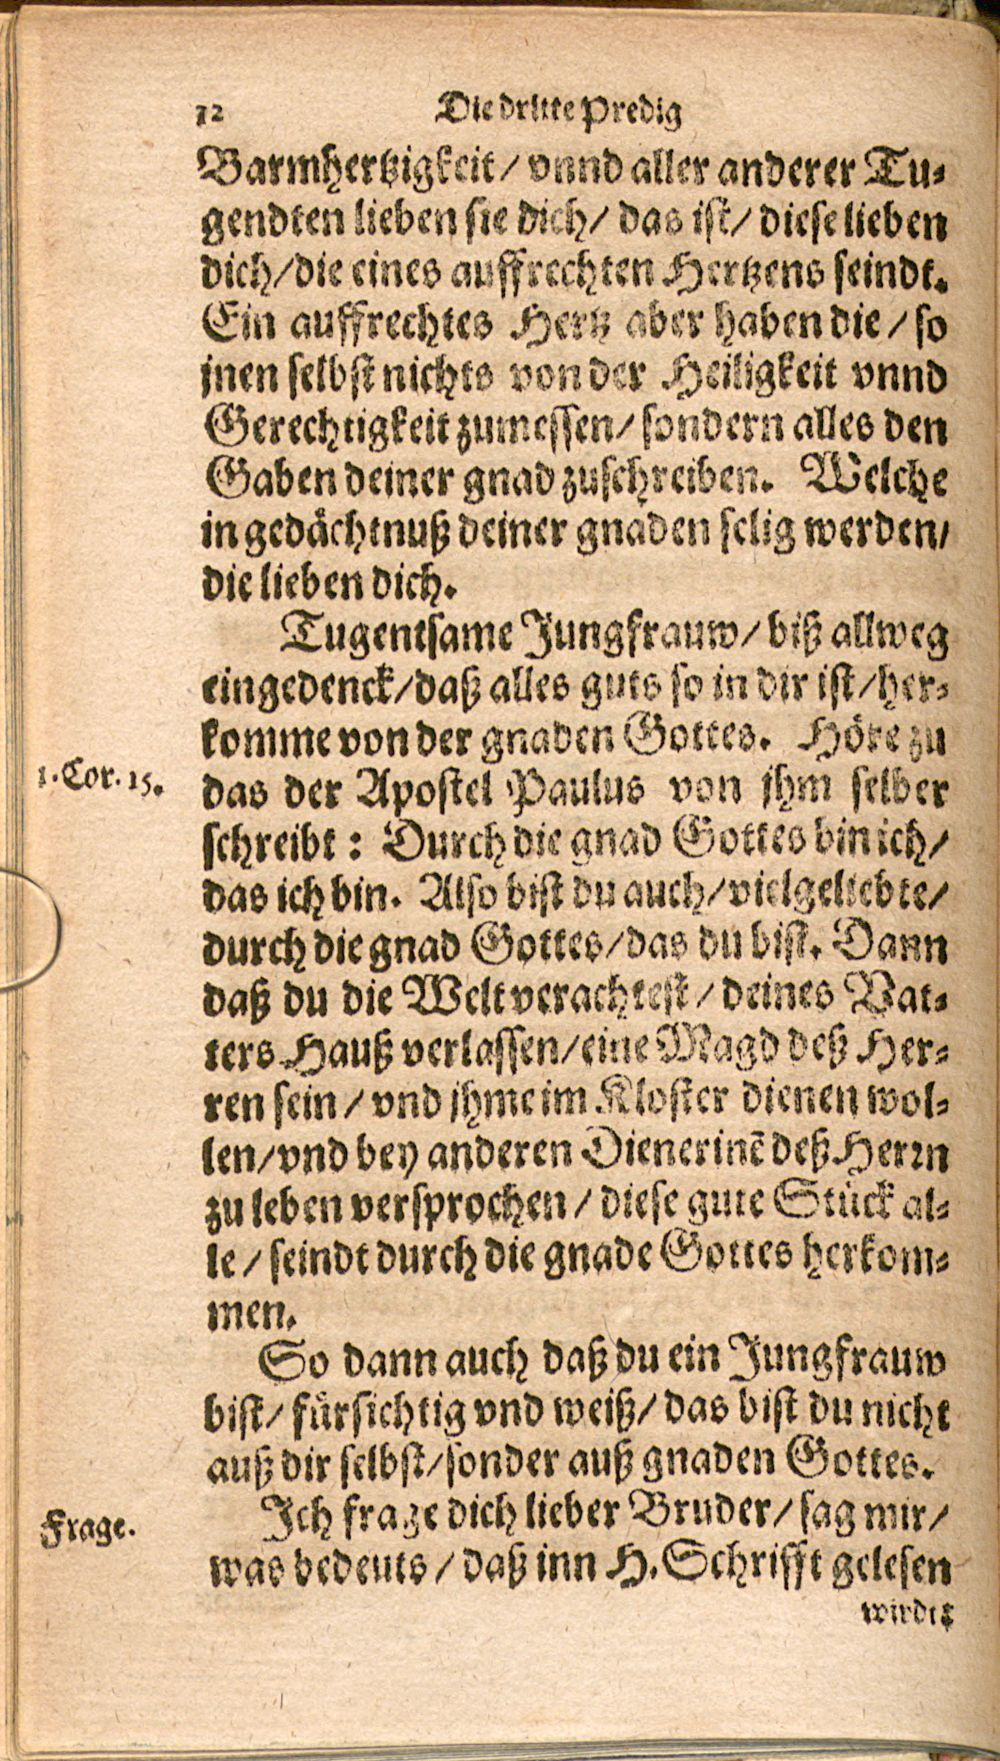 12 Die dritte Predig
Barmhertzigkeit / vnnd aller anderer Tu-
gendten lieben sie dich / das ist / diese lieben
dich / die eines auffrechten Hertzens seindt.
Ein auffrechtes Hertz aber haben die / so
jnen selbst nichts von der Heiligkeit vnnd
Gerechtigkeit zumessen / sondern alles den
Gaben deiner gnad zuschreiben. Welche
in gedächtnuß deiner gnaden selig werden /
die lieben dich.
Tugentsame Jungfrauw / biß allweg
eingedenck / daß alles guts so in dir ist / her-
komme von der gnaden Gottes. Höre zu
1. Cor. 15.
das der Apostel Paulus von jhm selber
schreibt : Durch die gnad Gottes bin ich /
das ich bin. Also bist du auch / vielgeliebte /
durch die gnad Gottes / das du bist. Dann
daß du die Welt verachtest / deines Vat-
ters Hauß verlassen / eine Magd deß Her-
ren sein / vnd jhme im Kloster dienen wol-
len / vnd bey anderen Dienerinē deß Herrn
zu leben versprochen / diese gute Stück al-
le / seindt durch die gnade Gottes herkom-
men.
So dann auch daß du ein Jungfrauw
bist / fürsichtig vnd weiß / das bist du nicht
auß dir selbst / sonder auß gnaden Gottes.
Frage.
Ich frage dich lieber Bruder / sag mir /
was bedeuts / daß inn H. Schrifft gelesen
wirdt: